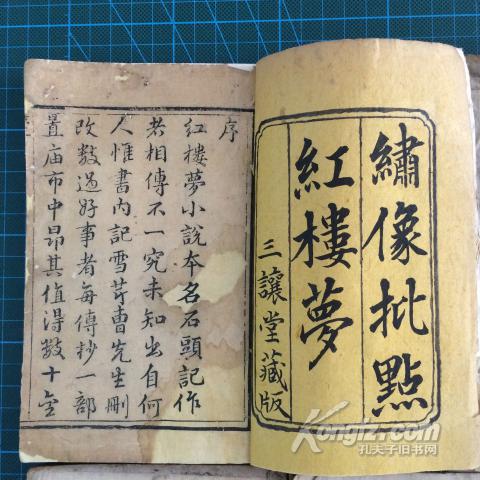 繡像批點
紅樓夢
三讓堂藏版
序
紅樓夢小說本名石頭記作
者相傳不一究未知出自何
人惟書內記雪芹曹先生刪
改數過好事者每傳抄一部
置庙市中昂其值得数十金
Kongfz.com
孔夫子旧书网